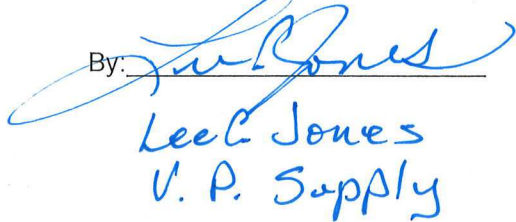 By: Lee C. Jones
Lee C. Jones
V. P. Supply